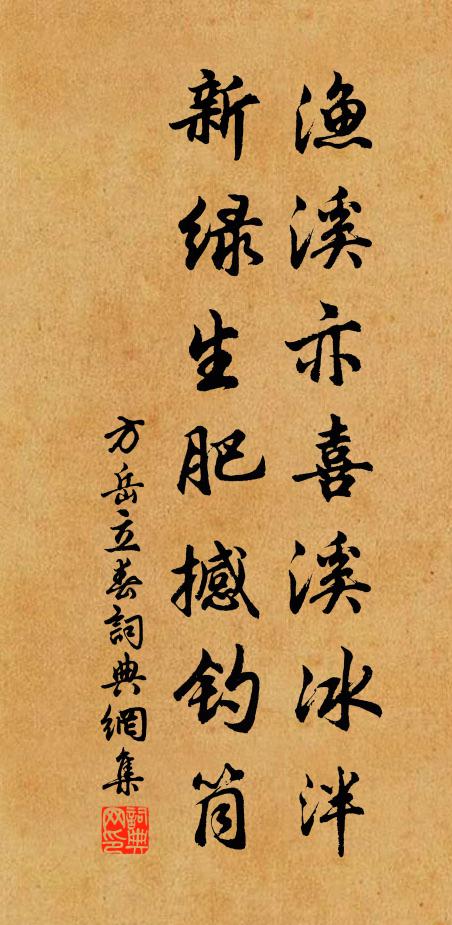 渔溪亦喜溪冰泮
新绿生肥撼钓筒
方岳立春詞典網集
詞典网印